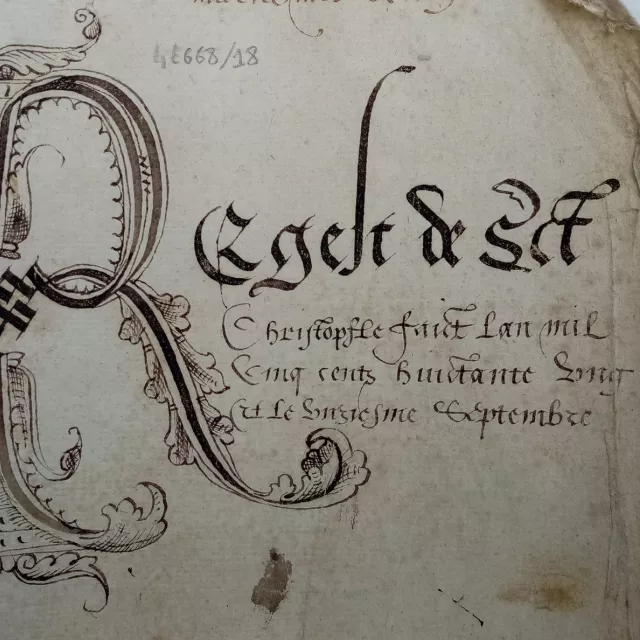 4E668/18
REgest de Sct
Christopfle faict Lan mil
Cinq cents huictante Ving
Et Le Vngiesme Septembre